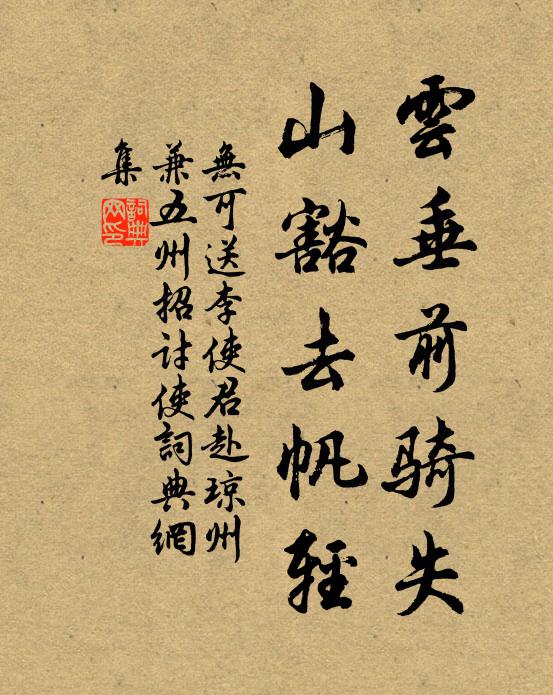 雲垂前骑失
山豁去帆輕
無可送李使君赴琼州
兼五州招討使詞典網
集
詞典
网印